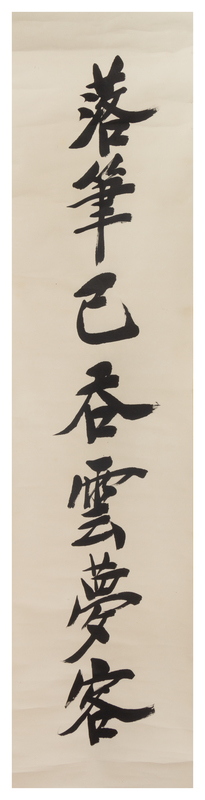 落筆已吞雲夢客